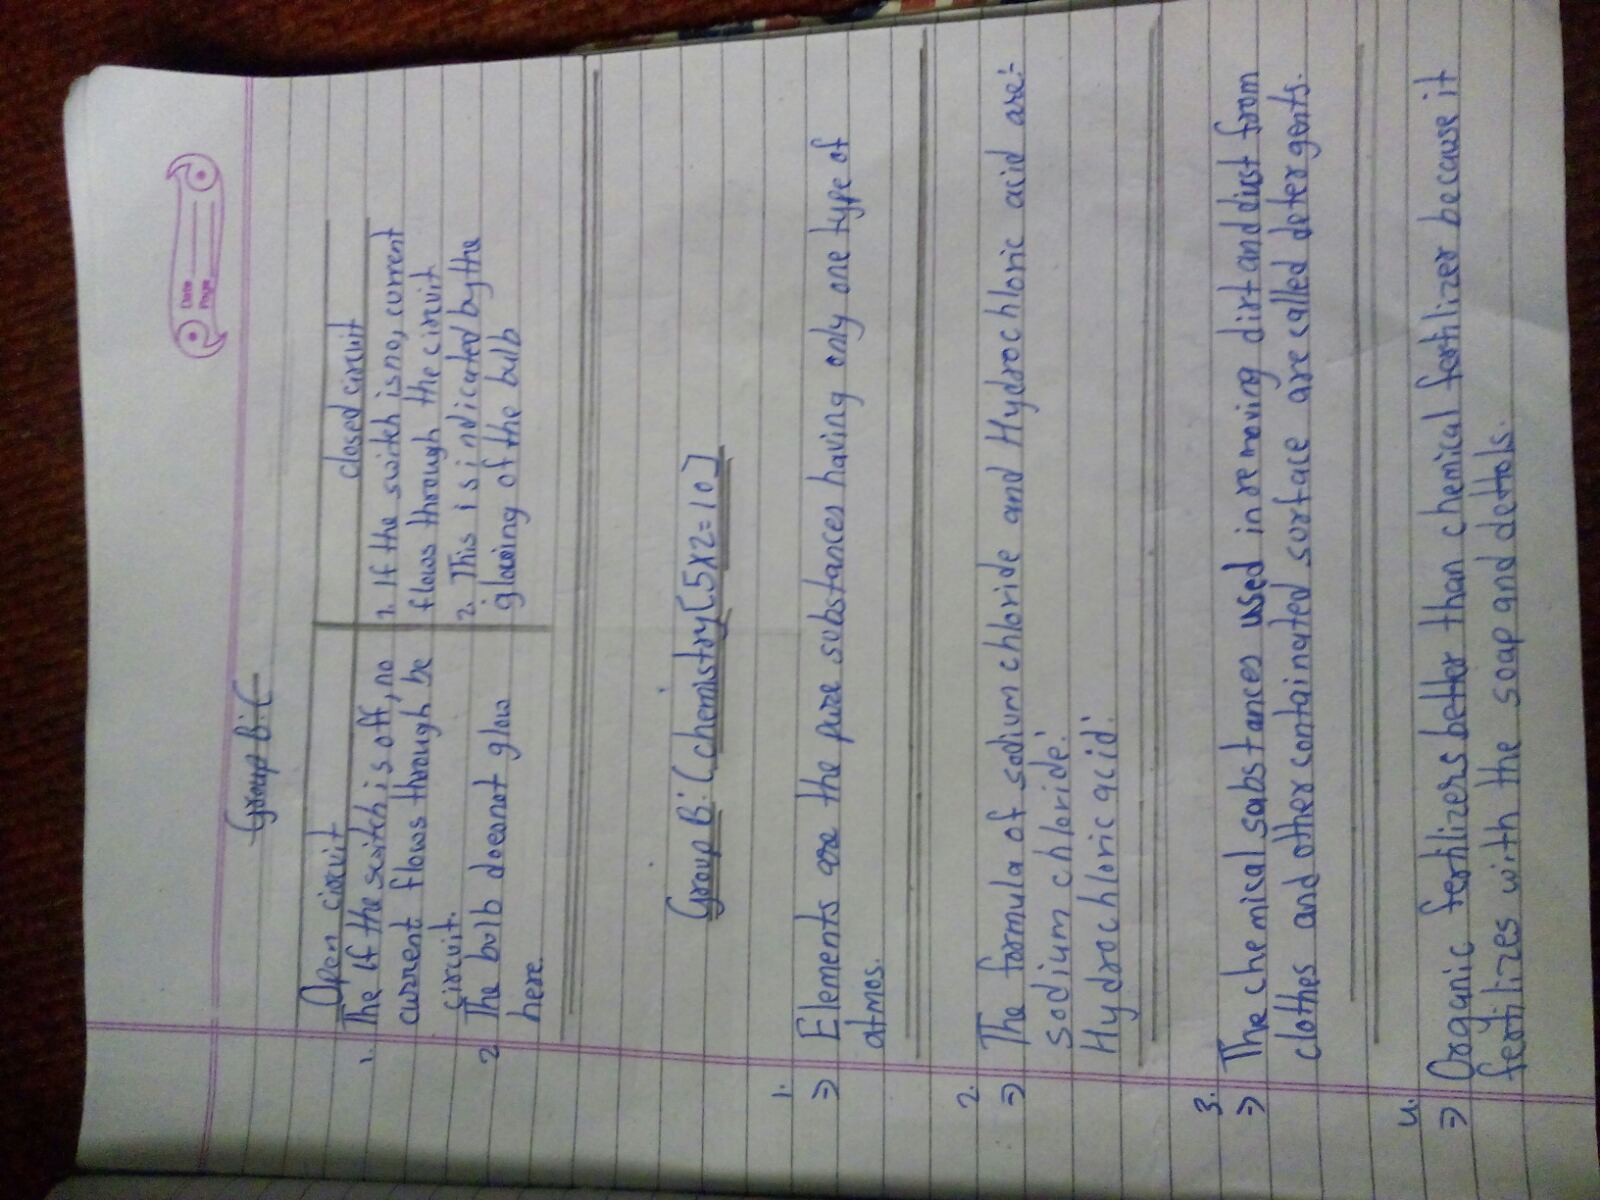 Date
Page
Group B: C
Open circuit | closed circuit
1. The If the switch is off, no | 1. If the switch is no, current
current flows through be | flows through the circuit
circuit. | 2. This is indicated by the
2 The bulb doesnot glow | glowing of the bulb
here.
Group B: (chemistry [5x2=10]
1.
⇒ Elements are the pure substances having only one type of
atmos.
2.
⇒ The formula of sodium chloride and Hydrochloric acid are:-
sodium chloride:
Hydrochloric acid:
3.
⇒ The chemical substances used in removing dirt and dust from
clothes and other containated surface are called detergents.
4.
⇒ Organic fertilizers better than chemical fertilizer because it
fertilizes with the soap and dettols.